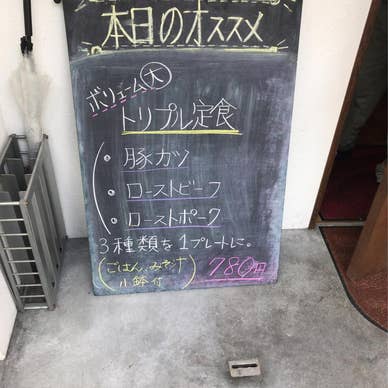 本日のオススメ
ボリューム大
トリプル定食
・豚カツ
・ローストビーフ
・ローストポーク
3種類を1プレートに。
(ごはん、みそ汁
小鉢付)
780円